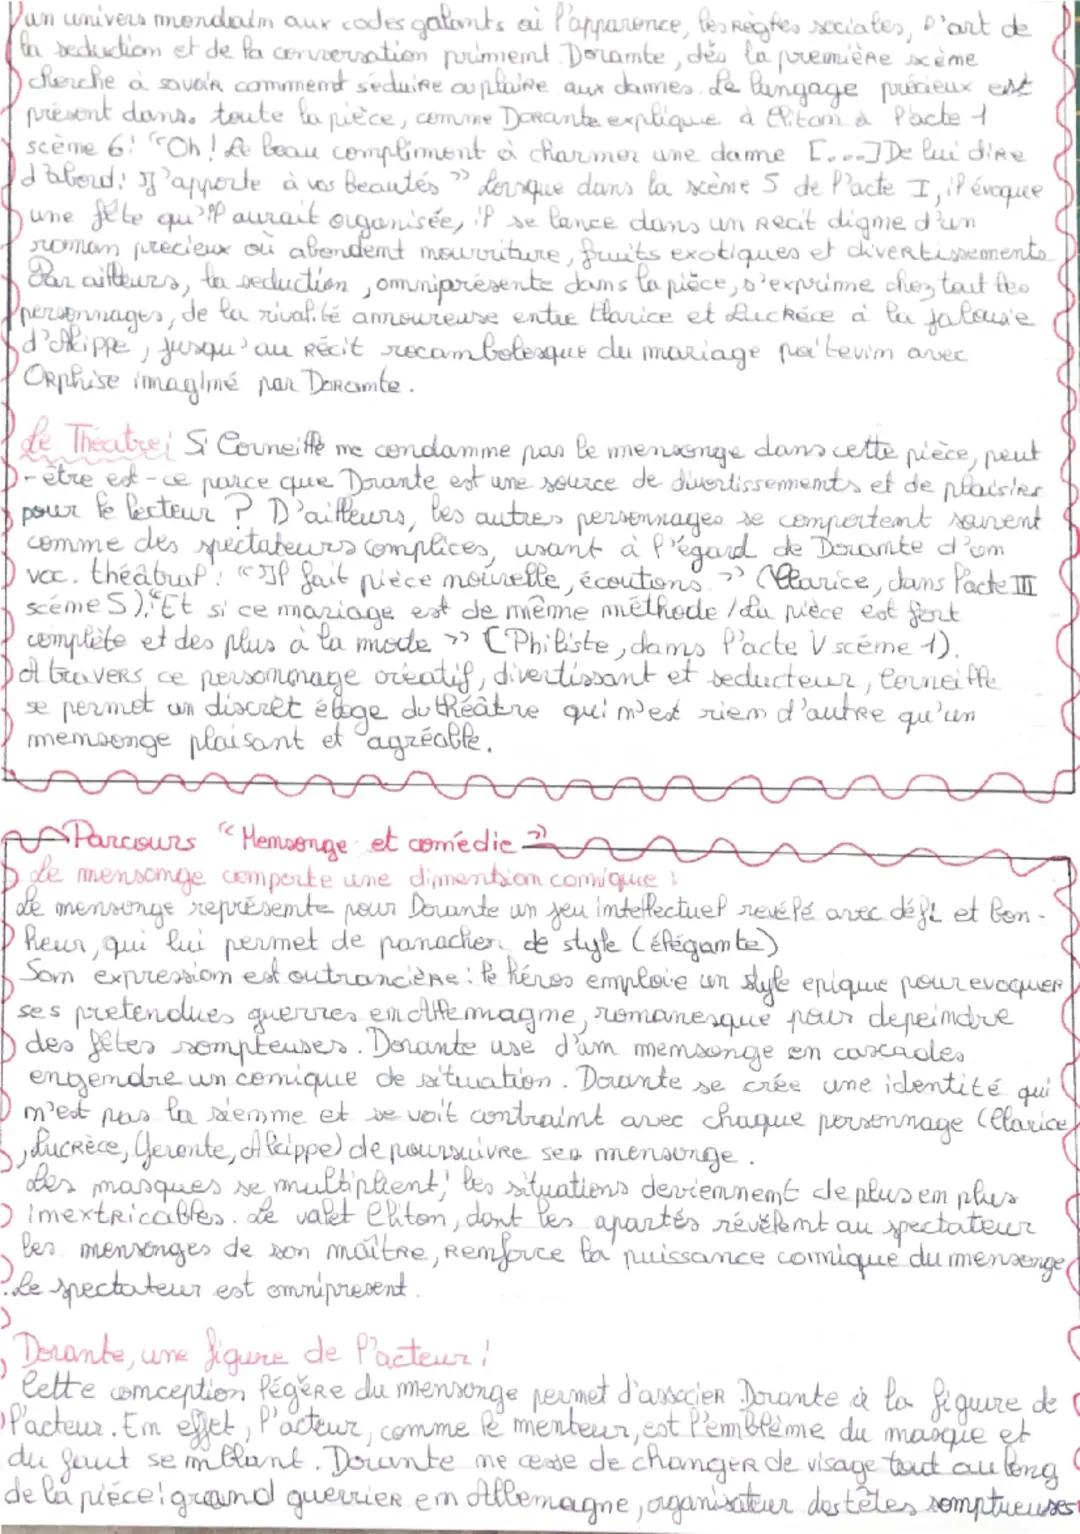 un univers mondain aux codes galants où l'apparence, les Règles sociales, l'art de
la seduction et de la conversation priment. Dorante, dès la première scène
cherche à savoir comment séduire ou plaire aux dames. Le langage précieux est
présent dans toute la pièce, comme Dorante explique à Cliton à l'acte 1
scène 6: "Oh! Le beau compliment à charmer une dame [...] De lui dire
d'abord: J'apporte à vos beautés" Lorsque dans la scène 5 de l'acte I, il évoque
une fête qu'il aurait organisée, il se lance dans un Récit digne d'un
roman precieux où abondent nourriture, fruits exotiques et divertissements
Par ailleurs, la seduction, omniprésente dans la pièce, s'exprime chez tout les
personnages, de la rivalité amoureuse entre Clarice et Luckéce à la jalousie
d'Alcippe, jusqu'au Récit rocambolesque du mariage poitevin avec
Orphise imaginé par Dorante.
Le Théatre: Si Corneille ne condamne pas le mensonge dans cette pièce, peut
-être est-ce parce que Dorante est une source de divertissements et de plaisirs
pour le lecteur? D'ailleurs, les autres personnages se comportent souvent
comme des spectateurs complices, usant à l'égard de Dorante d'un
voc. théâtral: "Il fait pièce nouvelle, écoutions." (Clarice, dans l'acte III
scène 5). "Et si ce mariage est de même méthode / La pièce est fort
complète et des plus à la mode" (Philiste, dans l'acte V scène 1).
A travers ce personnage créatif, divertissant et seducteur, Corneille
se permet un discret éloge du théâtre qui n'est rien d'autre qu'un
mensonge plaisant et agréable.
Parcours "Mensonge et comédie"
Le mensonge comporte une dimention comique:
Le mensonge représente pour Dorante un jeu intellectuel revélé avec défi et bon-
heur, qui lui permet de panacher de style (élégante)
Son expression est outrancière: le héros emploie un style epique pour evoquer
ses pretendues guerres en Allemagne, romanesque pour depeindre
des fêtes sompteuses. Dorante use d'un mensonge en cascades
engendre un comique de situation. Dorante se crée une identité qui
n'est pas la sienne et se voit contraint avec chaque personnage (Clarice
, Lucrèce, Geronte, Alcippe) de poursuivre ses mensonge.
Les masques se multiplient, les situations deviennent de plus en plus
inextricables. Le valet Cliton, dont les apartés révèlent au spectateur
les mensonges de son maître, Renforce la puissance comique du mensonge
. Le spectateur est omnipresent.
Dorante, une figure de l'acteur:
Cette conception légère du mensonge permet d'associer Dorante à la figure de
l'acteur. En effet, l'acteur, comme le menteur, est l'emblème du masque et
du faut semblant. Dorante ne cesse de changer de visage tout au long
de la pièce: grand guerrier en Allemagne, organisateur des fêtes somptueuses